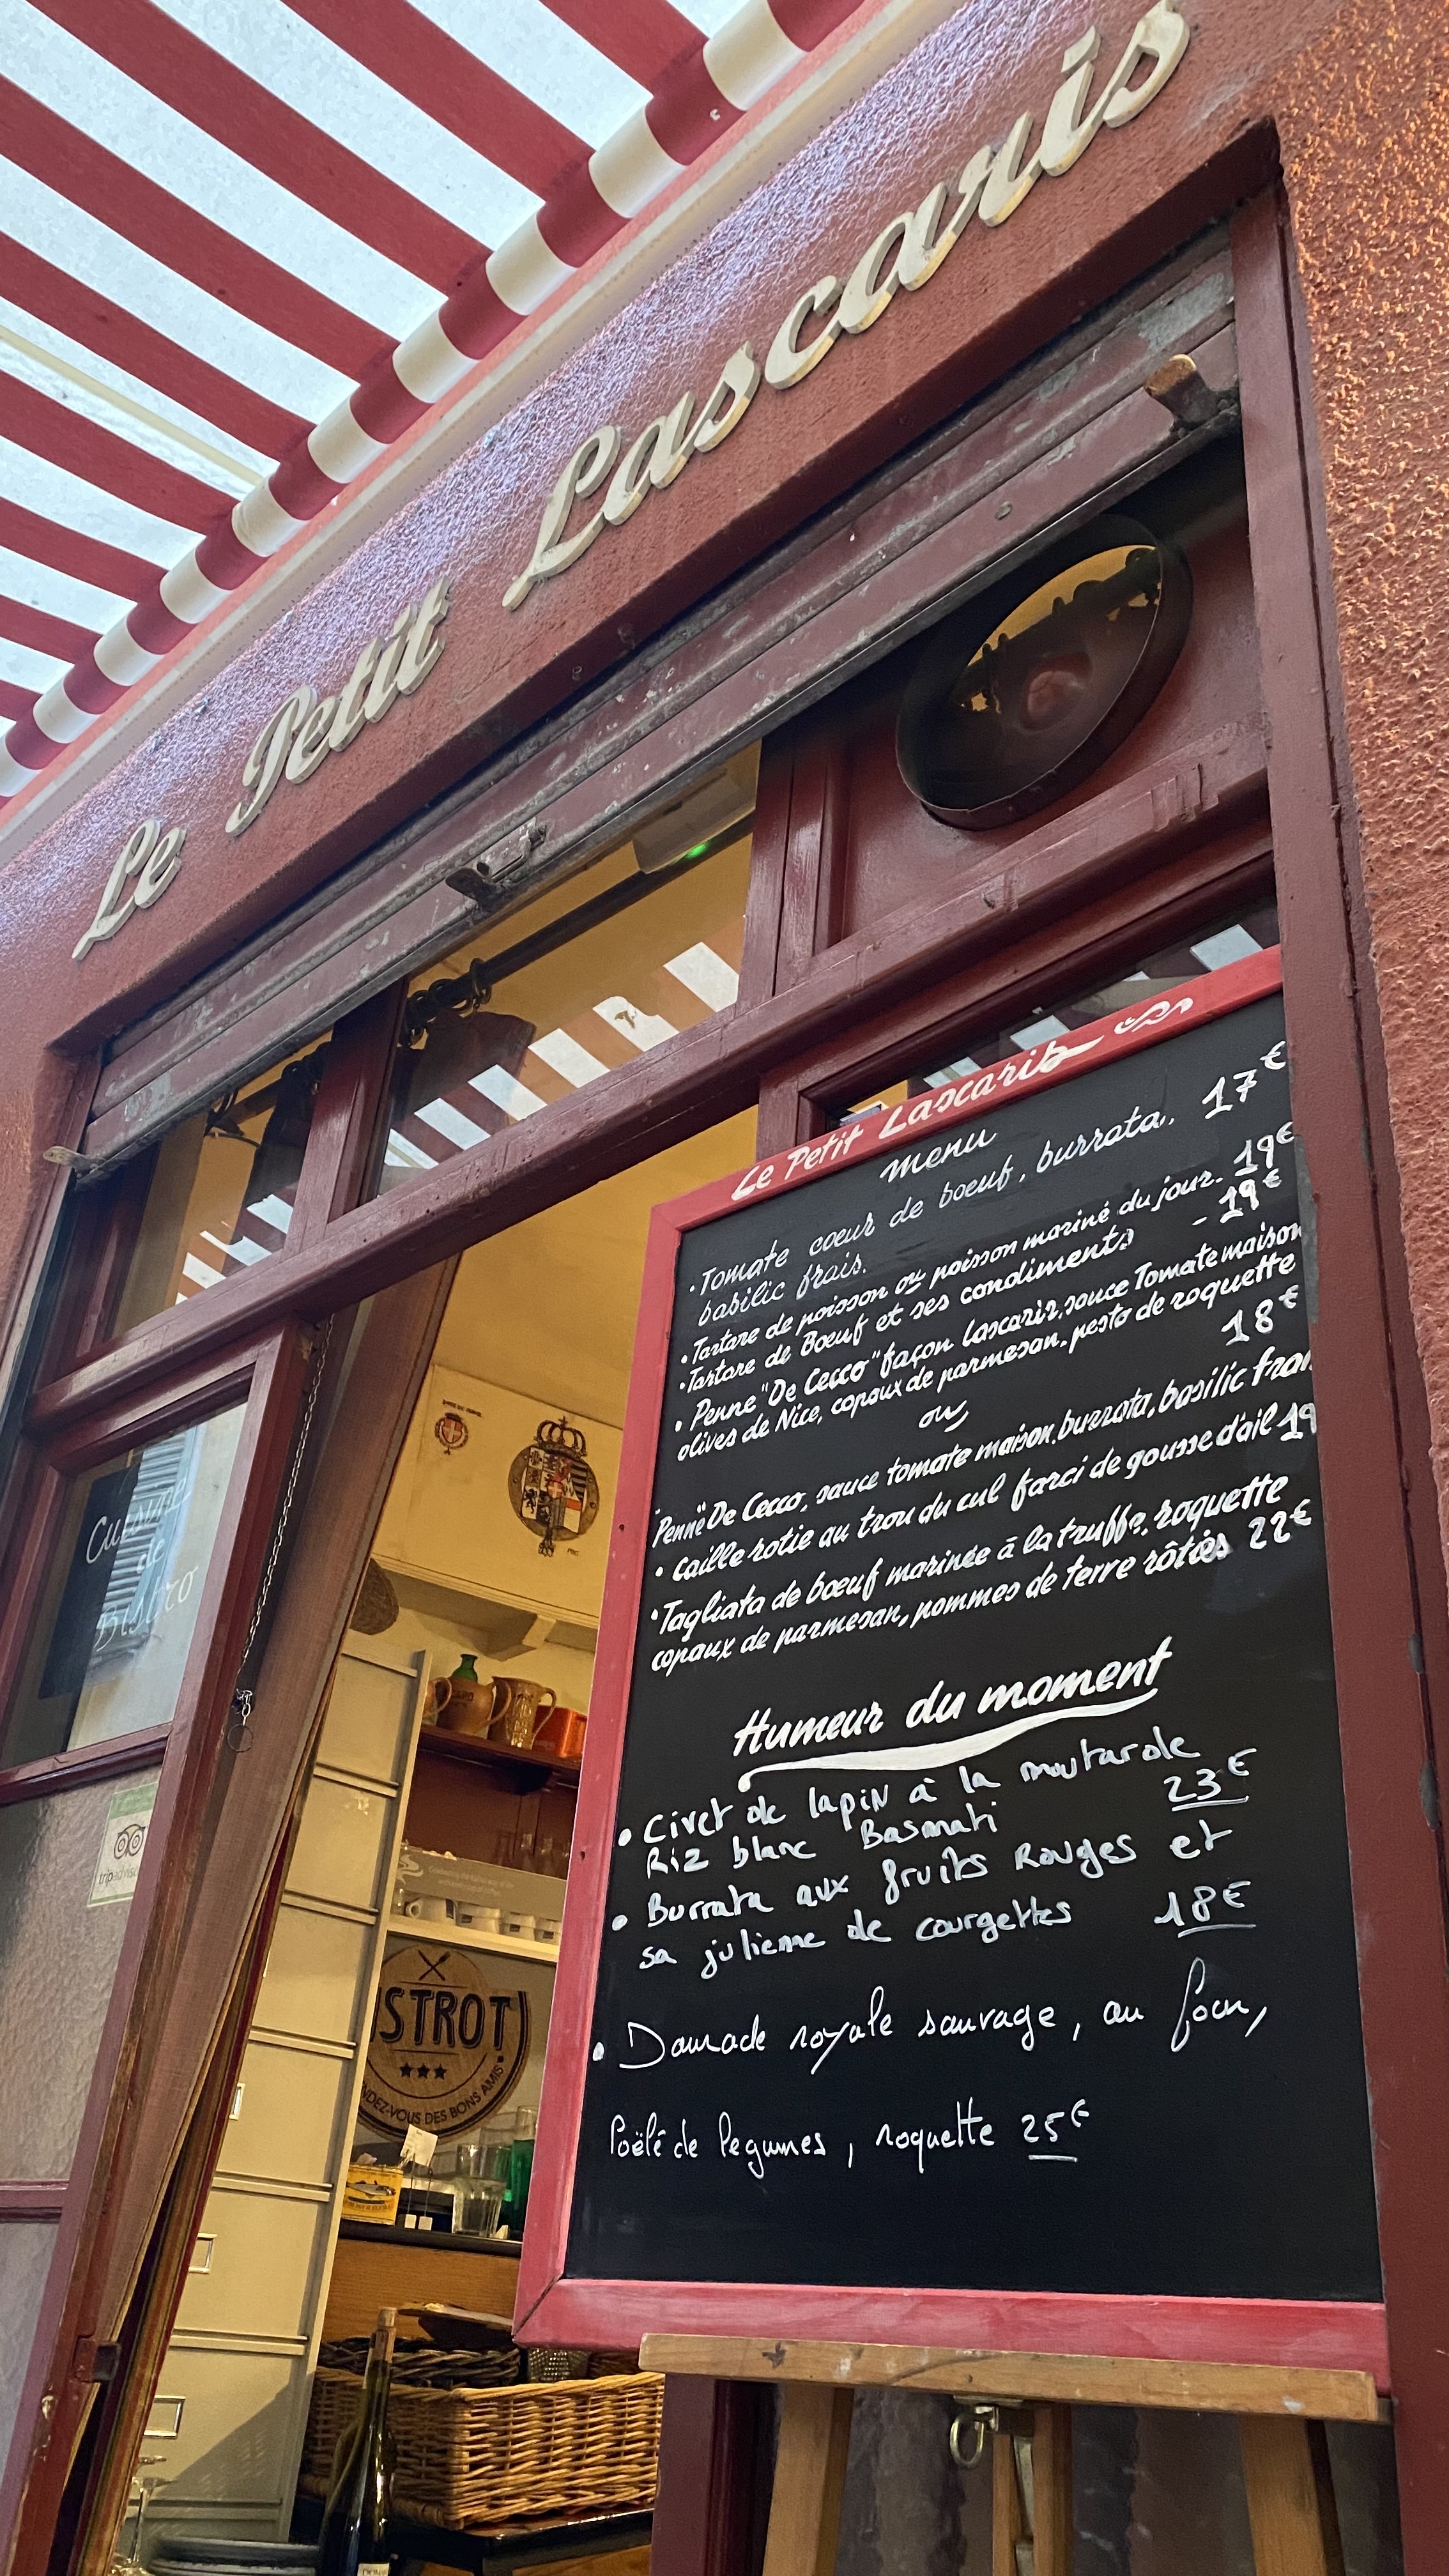 Le Petit Lascaris
Le Petit Lascaris
menu
• Tomate cœur de boeuf, burrata, 17€
basilic frais.
• Tartare de poisson ou poisson mariné du jour. 19€
• Tartare de Bœuf et ses condiments - 19€
• Penne "De Cecco" façon Lascaris, sauce Tomate maison
olives de Nice, copaux de parmesan, pesto de roquette
18€
ou
"Penne" De Cecco, sauce tomate maison, burrata, basilic
• Caille rotie au trou du cul farci de gousse d'ail 19
• Tagliata de bœuf marinée à la truffe, roquette
copaux de parmesan, pommes de terre rôties 22€
Humeur du moment
• Civet de lapin à la moutarde
Riz blanc Basmati 23€
• Burrata aux fruits Rouges et
sa julienne de courgettes 18€
• Daurade royale sauvage, au four,
Poëlé de legumes, roquette 25€
Cuisine
de
Bistro
ISTROT
NDEZ-VOUS DES BONS AMIS